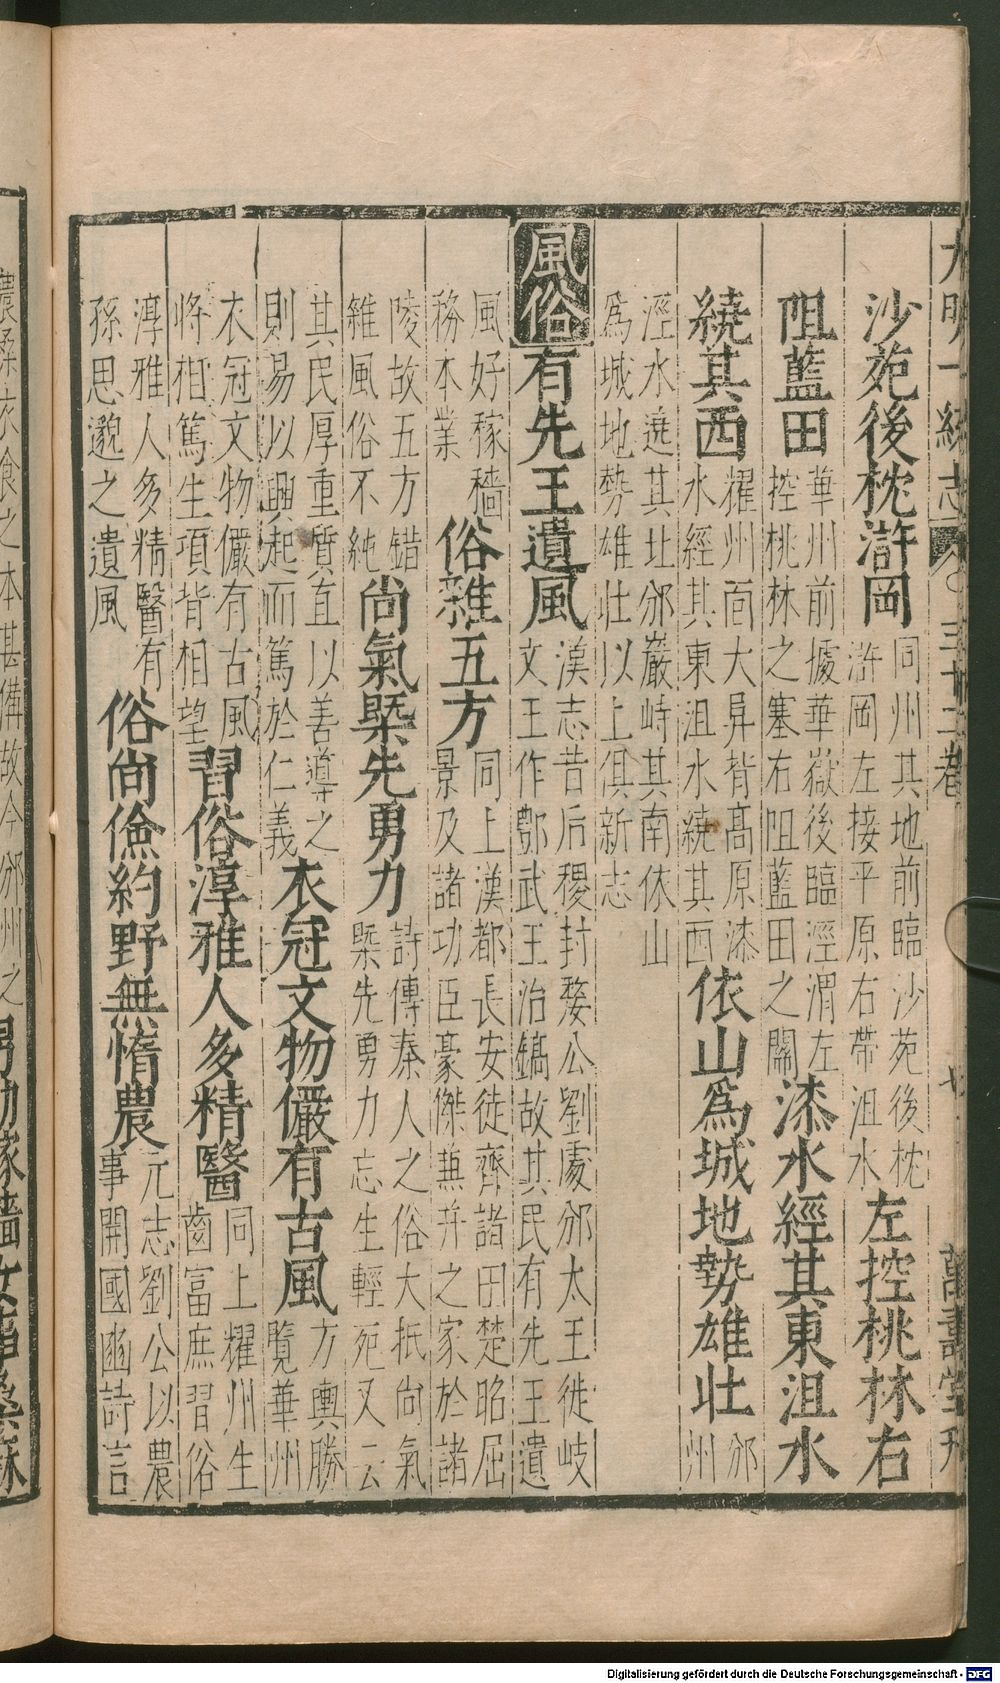 大明一統志 三十二卷 七 萬壽堂刊
沙苑後枕滸岡
同州其地前臨沙苑後枕
滸岡左接平原右帶沮水
左控桃林右
阻藍田
華州前據華嶽後臨涇渭左
控桃林之塞右阻藍田之關
漆水經其東沮水
繞其西
耀州面大昇背高原漆
水經其東沮水繞其西
依山爲城地勢雄壯
邠
州
涇水遶其北邠巖峙其南依山
爲城地勢雄壯以上俱新志
風俗
有先王遺風
漢志昔后稷封斄公劉處邠太王徙岐
文王作酆武王治鎬故其民有先王遺
風好稼穡
務本業
俗雜五方
同上漢都長安徙齊諸田楚昭屈
景及諸功臣豪傑兼并之家於諸
陵故五方錯
雜風俗不純
尚氣槩先勇力
詩傳秦人之俗大抵尚氣
槩先勇力忘生輕死又云
其民厚重質直以善導之
則易以興起而篤於仁義
衣冠文物儼有古風
方輿勝
覽華州
衣冠文物儼有古風
將相篤生項背相望
習俗淳雅人多精醫
同上耀州生
齒富庶習俗
淳雅人多精醫有
孫思邈之遺風
俗尚儉約野無惰農
元志劉公以農
事開國豳詩言
農桑衣食之本甚備故今邠州之
男勤稼穡女事桑麻
Digitalisierung gefördert durch die Deutsche Forschungsgemeinschaft - DFG